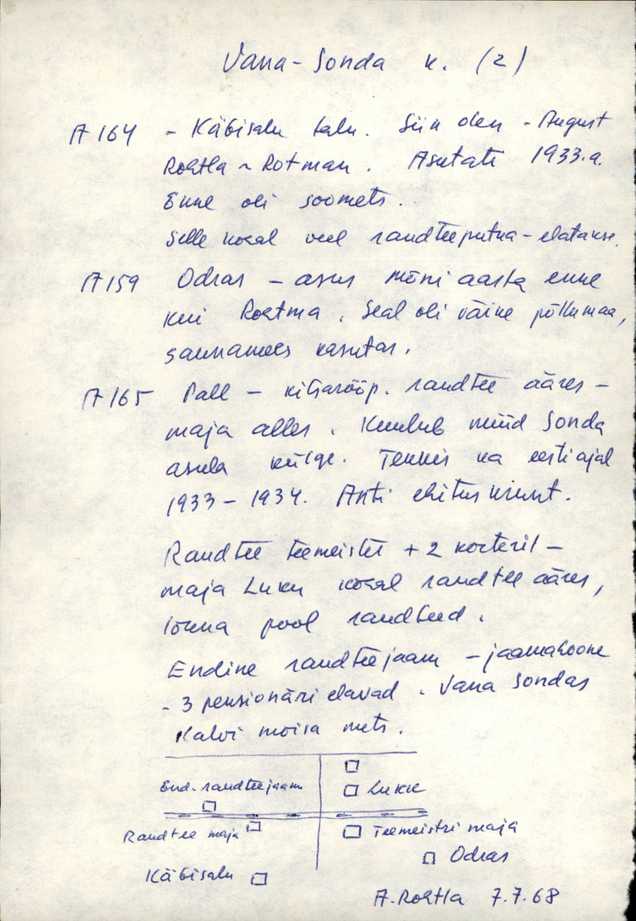 Vana-Sonda k. (2)
A 164 - Käbisalu talu. Siin olen - August
Rohtla ~ Rotman. Asutati 1933.a.
Enne oli soomets.
Selle kohal veel raudteeputka - elatakse.
A 159 Odras - asus mõni aasta enne
kui Rohtma. Seal oli väike põllumaa,
saunamees kasutas.
A 165 Pall - kitsarööp. raudtee ääres -
maja alles. Kuulub nüüd Sonda
asula külge. Tekkis ka eesti ajal
1933 - 1934. Anti ehituskrunt.
Raudtee teemeister + 2 korterit -
maja Luku kohal raudtee ääres,
lõuna pool raudteed.
Endine raudteejaam - jaamahoone
- 3 pensionäri elavad. Vana Sondas
Kalvi mõisa mets.
End. raudteejaam
Lukk
Raudtee maja
Teemeistri maja
Odras
Käbisalu
A. Rohtla 7.7.68